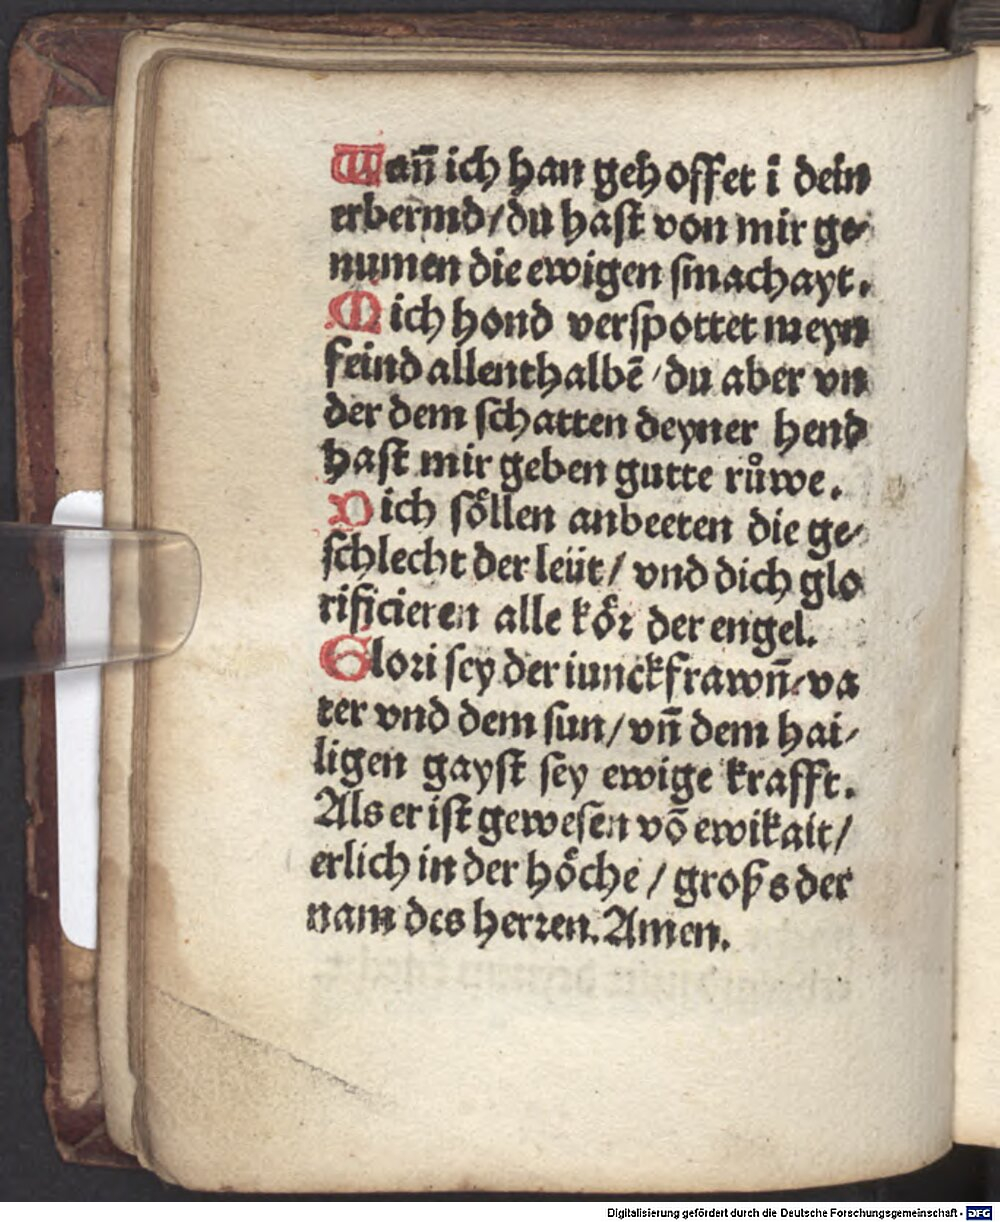 Wañ ich han gehoffet ī dein
erbermd/du hast von mir ge⸗
numen die ewigen smachayt.
Mich hond verspottet meyn
feind allenthalbē/du aber vn
der dem schatten deyner hend
hast mir geben gutte růwe.
Dich soͤllen anbeeten die ge⸗
schlecht der leüt/ vnd dich glo
rificieren alle koͤr der engel.
Glori sey der iunckfrawñ/va
ter vnd dem sun/vñ dem hai⸗
ligen gayst sey ewige krafft.
Als er ist gewesen vō ewikait/
erlich in der hoͤche / groß s der
nam des herren. Amen.
Digitalisierung gefördert durch die Deutsche Forschungsgemeinschaft - DFG